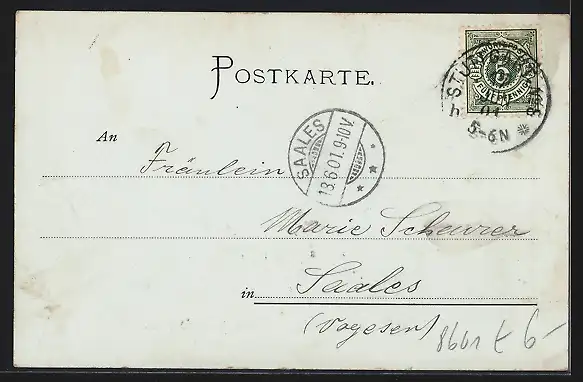 POSTKARTE.
STUTTGART
5
FÜNF PFENNIG
01
5-6N
An
SAALES
13.6.01.9-10V.
Fräulein
Marie Scheurer
in Saales
(Vogesen)
8601 t 6-